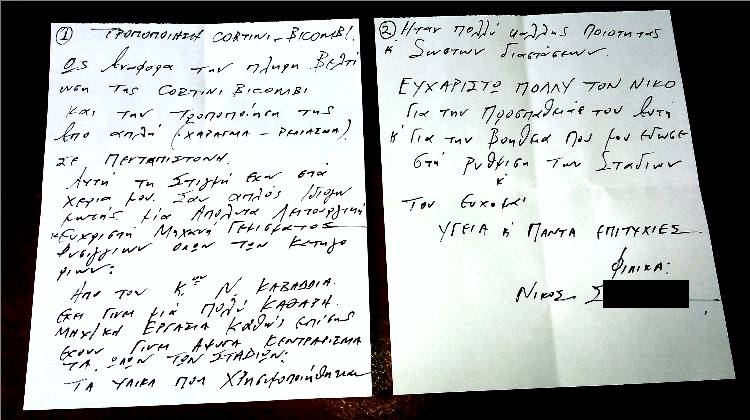 ① ΤΡΟΠΟΠΟΙΗΣΗ CORTINI-BICOMBI.
Ως Αναφορα την πληρη Βελτι
ωση της CORTINI BICOMBI
και την Τροποποίηση της
Απο απλή (ΧΑΡΑΓΜΑ-ΡΕΜΙΑΣΜΑ)
ΣΕ ΠΕΝΤΑΠΙΣΤΟΝΗ.
Αυτή τη Στιγμή εχω στα
χερια μου. Σαν απλός Ιδιο
κτητής μία Απολυτα Λειτουργική
κ Ευχρηστη Μηχανή Γεμισματος
Φυσιγγιων ολων των Κατηγο
ριων:
Απο τον Κον Ν. ΚΑΒΑΔΔΙΑ.
Εχει Γινει μιά πολύ ΚΑΘΑΡΗ.
ΜΗΧ/ΚΗ ΕΡΓΑΣΙΑ καθώς επίσης
Εχουν Γινει Αψογα ΚΕΝΤΡΑΡΙΣΜΑ
ΤΑ ΟΛΩΝ ΤΩΝ ΣΤΑΔΙΩΝ:
ΤΑ ΥΛΙΚΑ ΠΟΥ Χρησιμοποιήθηκαν
② Ηταν πολλύ καλλης ποιοτητας
κ Σωστων διαστάσεων.
ΕΥΧΑΡΙΣΤΩ ΠΟΛΛΥ ΤΟΝ ΝΙΚΟ
Για την Προσπαθεια του Αυτή
κ' Για την Βοηθεια που μου εδωσε
στη ρυθμιση των Σταδιων
κ'
Του Ευχομαι
ΥΓΕΙΑ κ ΠΑΝΤΑ ΕΠΙΤΥΧΙΕΣ.
Φιλικα:
Νικος Σ